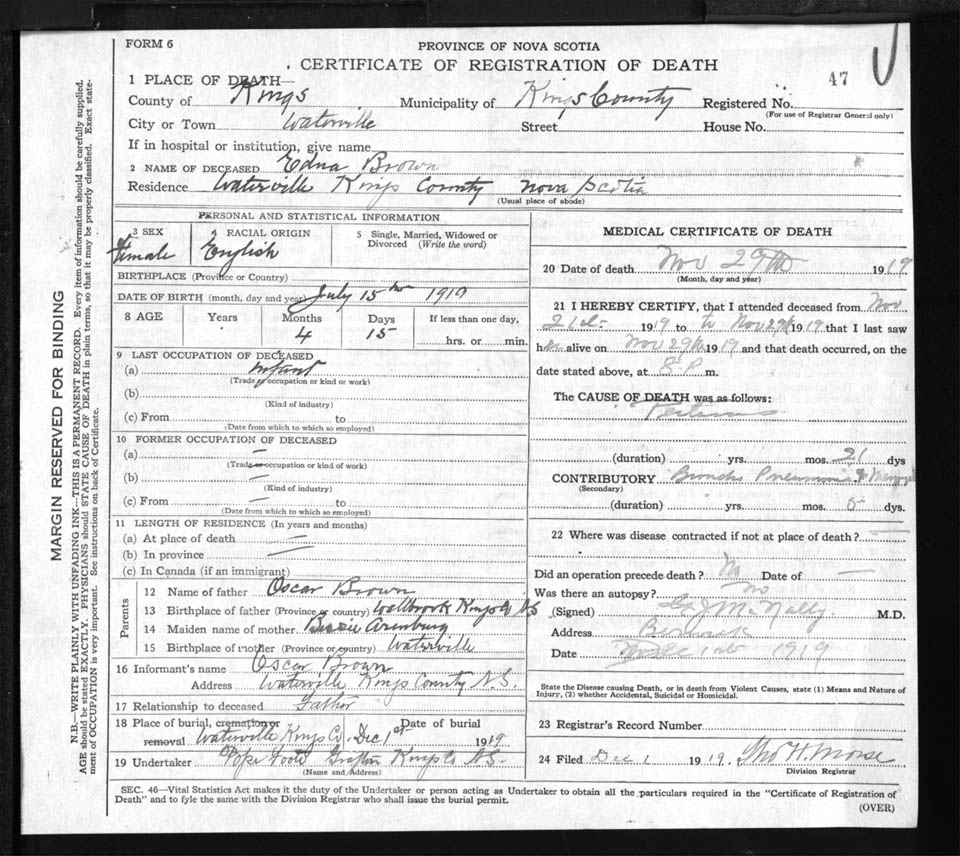 FORM 6
PROVINCE OF NOVA SCOTIA
CERTIFICATE OF REGISTRATION OF DEATH
47
1 PLACE OF DEATH—
County of Kings Municipality of Kings County Registered No.
(For use of Registrar General only)
City or Town Waterville Street House No.
If in hospital or institution, give name
2 NAME OF DECEASED Edna Brown
Residence Waterville Kings County Nova Scotia
(Usual place of abode)
MARGIN RESERVED FOR BINDING
N.B.—WRITE PLAINLY WITH UNFADING INK—THIS IS A PERMANENT RECORD. Every item of information should be carefully supplied.
AGE should be stated EXACTLY. PHYSICIANS should STATE CAUSE OF DEATH in plain terms, so that it may be properly classified. Exact state-
ment of OCCUPATION is very important. See instructions on back of Certificate.
PERSONAL AND STATISTICAL INFORMATION
3 SEX
Female
RACIAL ORIGIN
English
5 Single, Married, Widowed or
Divorced (Write the word)
BIRTHPLACE (Province or Country)
DATE OF BIRTH (month, day and year) July 15th 1919
8 AGE Years Months Days If less than one day,
4 15
hrs. or min.
9 LAST OCCUPATION OF DECEASED
(a) Infant
(Trade or occupation or kind or work)
(b)
(Kind of industry)
(c) From to
(Date from which to which so employed)
10 FORMER OCCUPATION OF DECEASED
(a) —
(Trade or occupation or kind of work)
(b) —
(Kind of industry)
(c) From — to
(Date from which to which so employed)
11 LENGTH OF RESIDENCE (In years and months)
(a) At place of death —
(b) In province —
(c) In Canada (if an immigrant)
Parents
12 Name of father Oscar Brown
13 Birthplace of father (Province or country) Wallbrook Kings Co NS
14 Maiden name of mother Bessie Arenburg
15 Birthplace of mother (Province or country) Waterville
16 Informant's name Oscar Brown
Address Waterville Kings County N.S.
17 Relationship to deceased Father
18 Place of burial, cremation or Date of burial
removal Waterville Kings Co. Dec 1st 1919
19 Undertaker Pope Foote Grafton Kings Co N.S.
(Name and Address)
MEDICAL CERTIFICATE OF DEATH
20 Date of death Nov 29th 1919
(Month, day and year)
21 I HEREBY CERTIFY, that I attended deceased from Nov
21st 1919 to to Nov 29th 1919 that I last saw
her alive on Nov 29th 1919 and that death occurred, on the
date stated above, at 8 P m.
The CAUSE OF DEATH was as follows:
Pertussis
(duration) yrs. mos. 21 dys
CONTRIBUTORY Broncho Pneumonia &
(Secondary)
(duration) yrs. mos. 5 dys.
22 Where was disease contracted if not at place of death? —
Did an operation precede death? No Date of —
Was there an autopsy? No
(Signed) McNally M.D.
Address Berwick
Date Dec 1st 1919
State the Disease causing Death, or in death from Violent Causes, state (1) Means and Nature of
Injury, (2) whether Accidental, Suicidal or Homicidal.
23 Registrar's Record Number
24 Filed Dec 1 1919. Tho H. Morse
Division Registrar
SEC. 46—Vital Statistics Act makes it the duty of the Undertaker or person acting as Undertaker to obtain all the particulars required in the "Certificate of Registration of
Death" and to fyle the same with the Division Registrar who shall issue the burial permit.
(OVER)